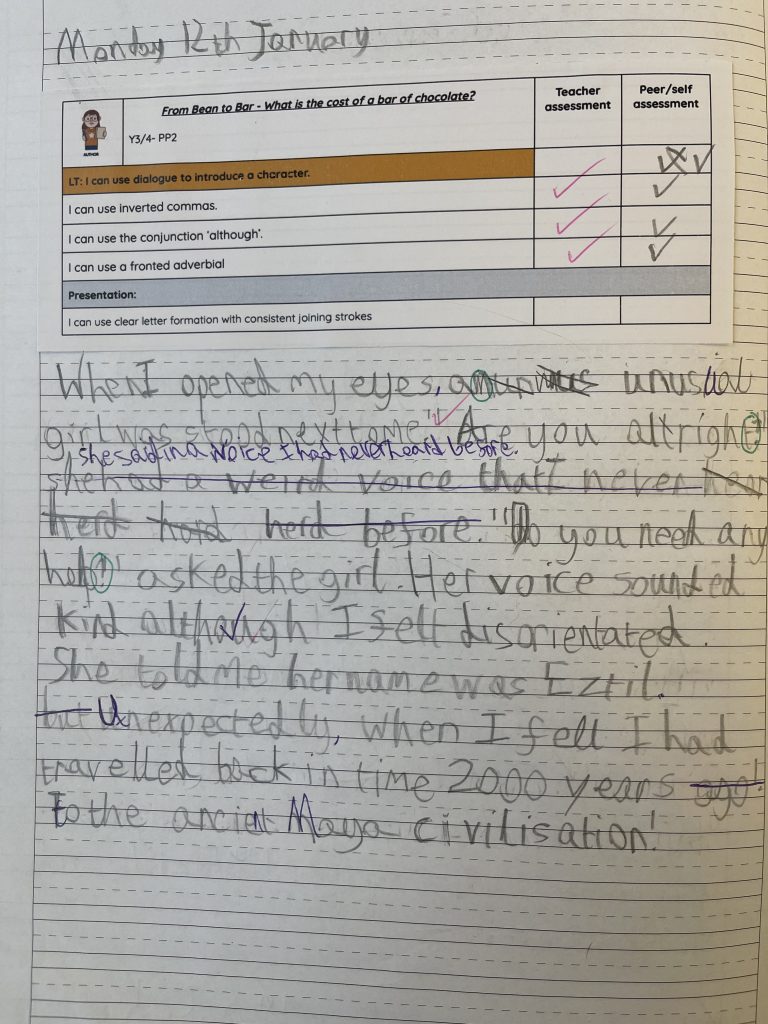 Monday 12th January
From Bean to Bar - What is the cost of a bar of chocolate?
Teacher assessment
Peer/self assessment
Y3/4- PP2
AUTHOR
LT: I can use dialogue to introduce a character.
I can use inverted commas.
I can use the conjunction 'although'.
I can use a fronted adverbial
Presentation:
I can use clear letter formation with consistent joining strokes
When I opened my eyes, an unusual
girl was stood next to me. "Are you allright?"
she said in a voice I had never heard before.
she had a weird voice that I never hear
herd hord herd before. "Do you need any
help?" asked the girl. Her voice sounded
kind although I felt disorientated.
She told me her name was Eztil.
but Unexpectedly, when I fell I had
travelled back in time 2000 years ago!
to the ancient Maya civilisation!